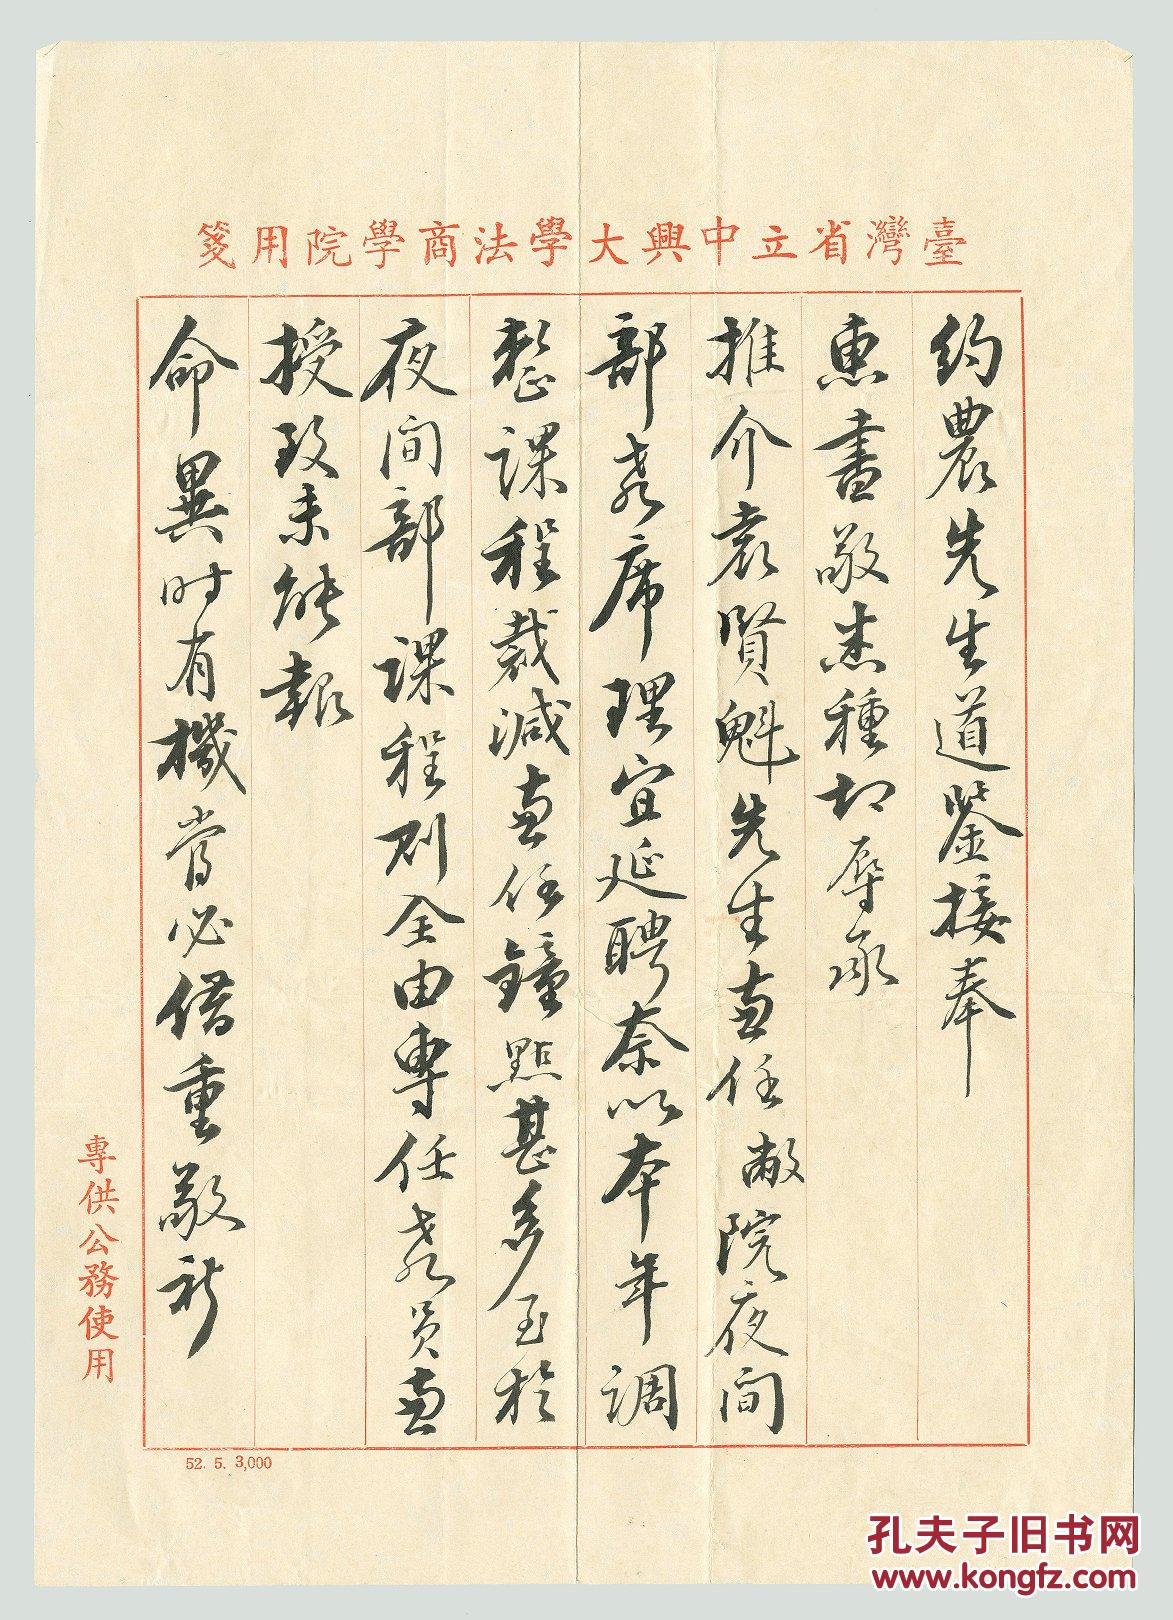 臺灣省立中興大學法商學院用箋
約農先生道鑒接奉
惠書敬悉種切辱承
推介袁賢魁先生兼任敝院夜間
部教席理宜延聘奈以本年調
整課程裁減兼任鐘點甚多至於
夜間部課程則全由專任教員兼
授致未能報
命異时有機當必借重敬祈
專供公務使用
52. 5. 3,000
孔夫子旧书网
www.kongfz.com